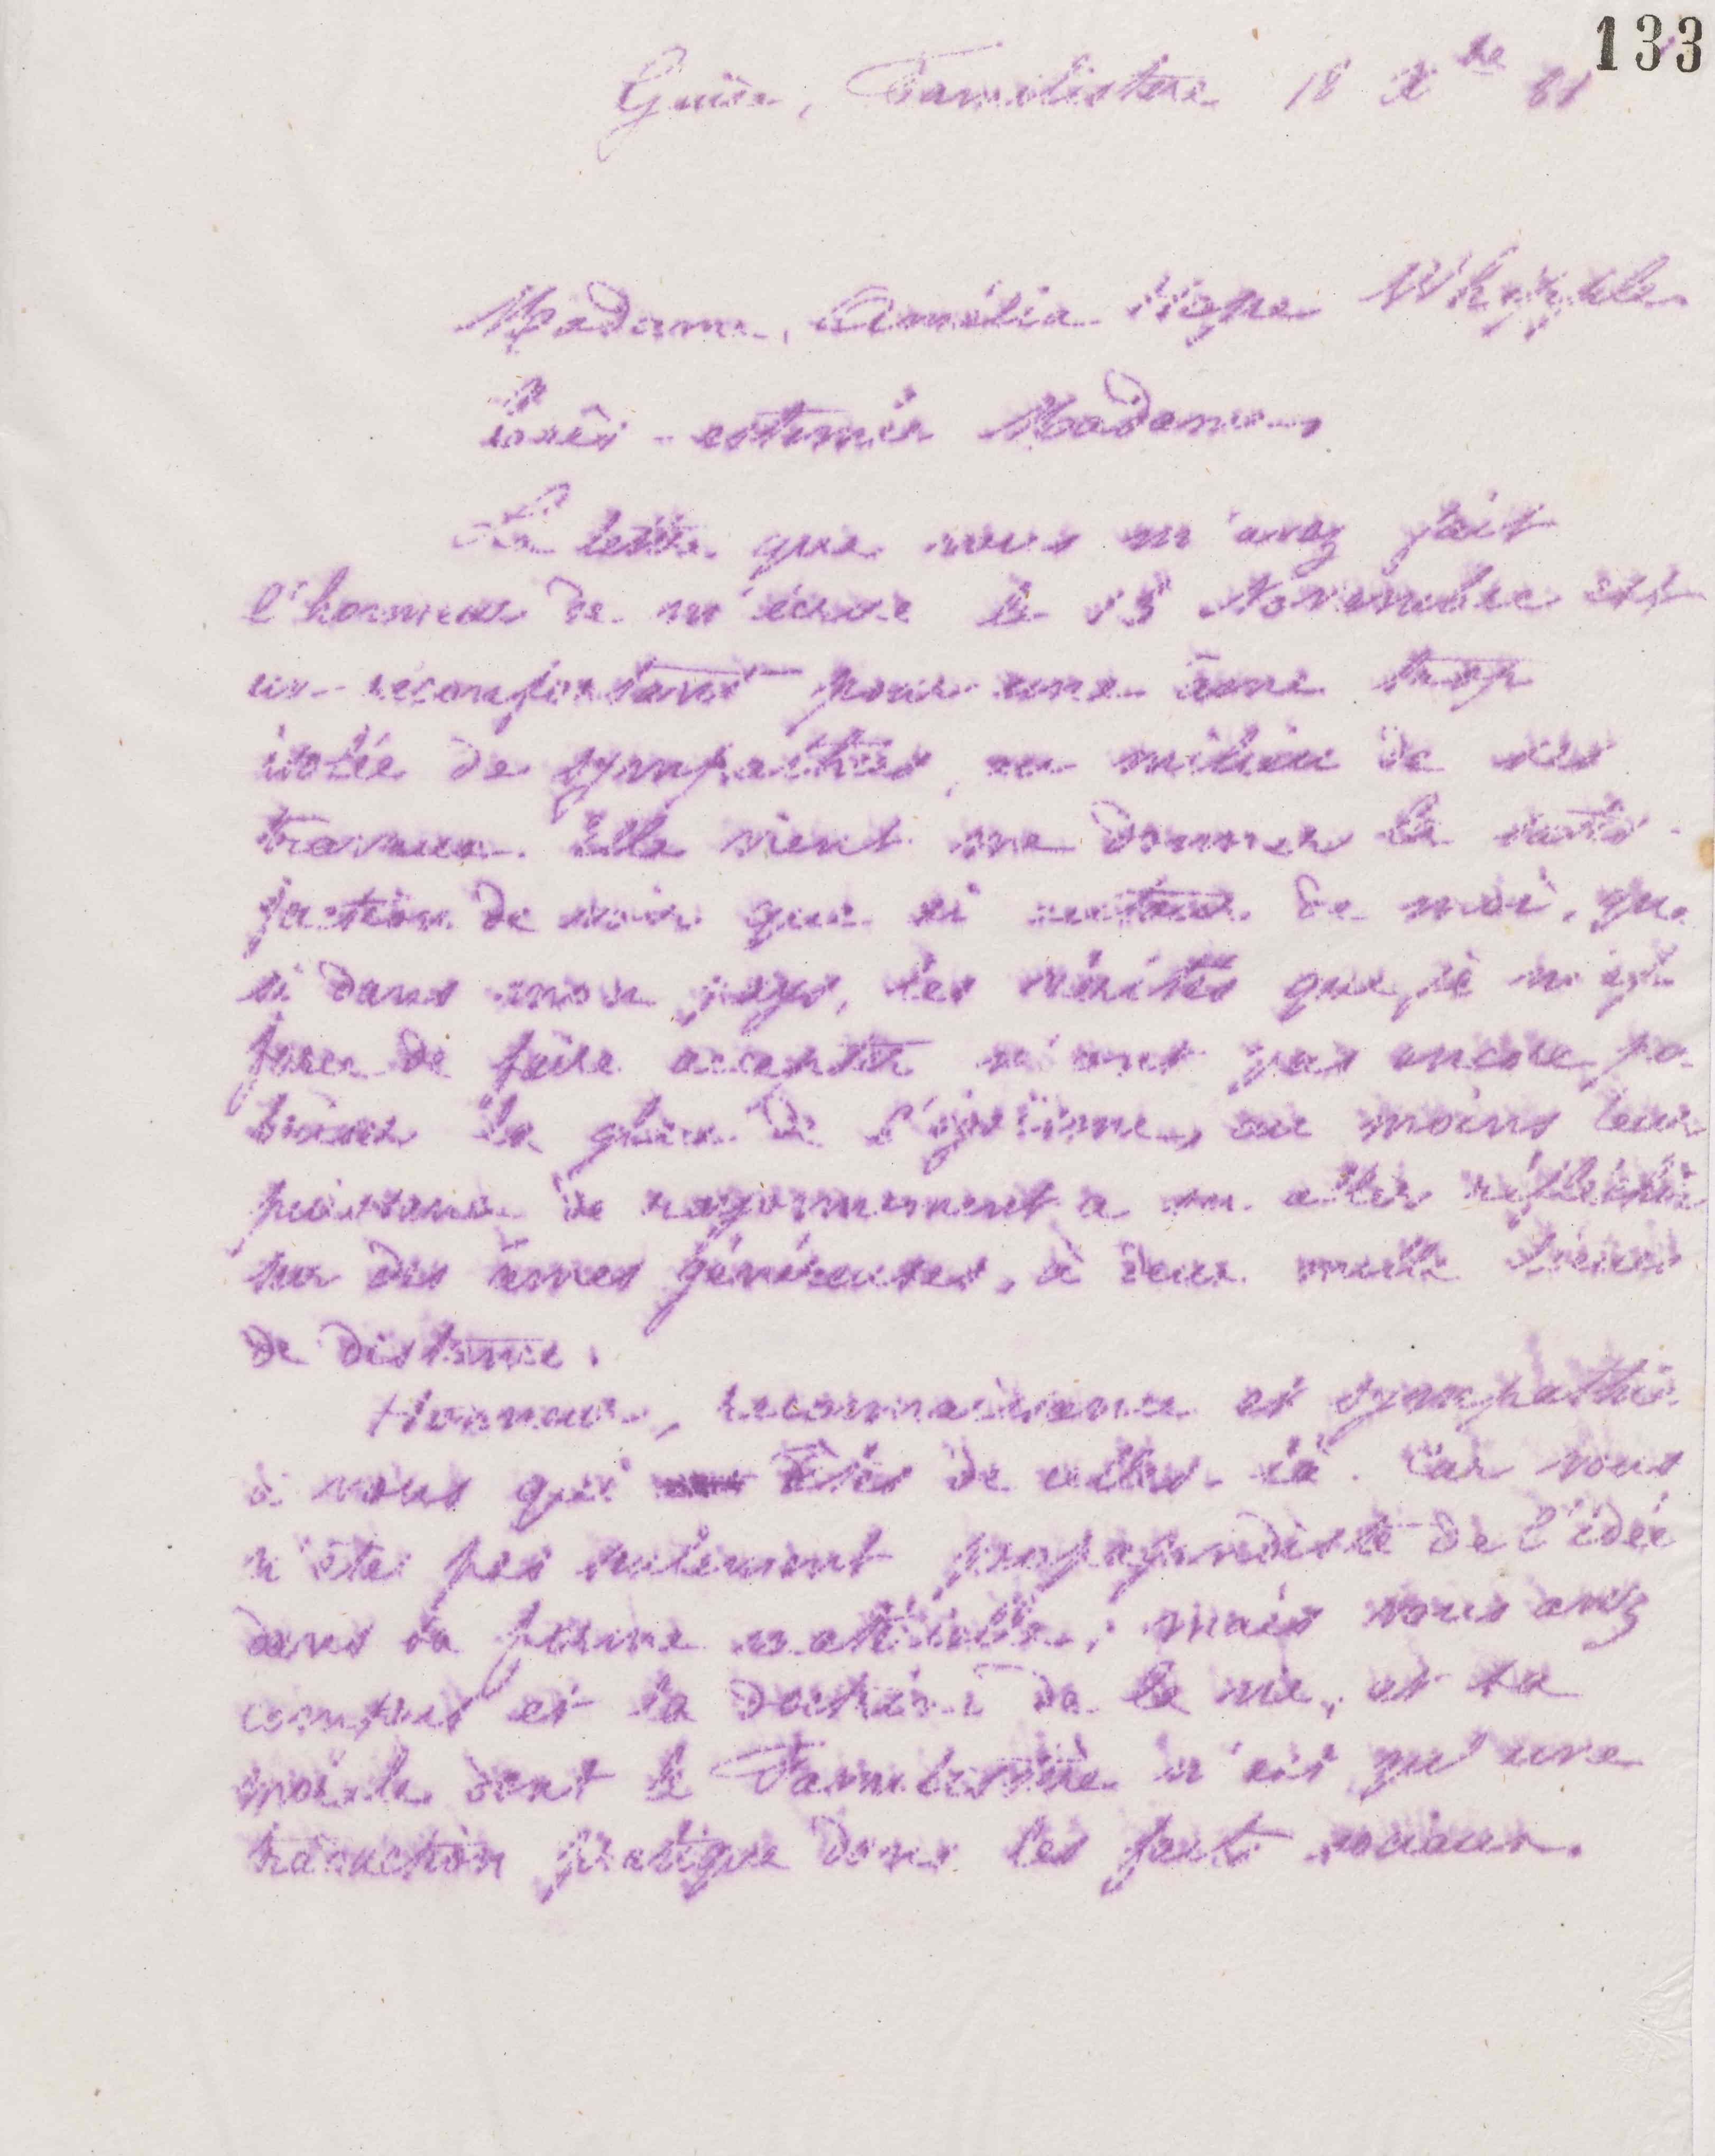 133
Guise, Familistère 18 Xbre 81
Madame, Amélia Hope Whipple
Très-estimée Madame,
La lettre que vous m'avez fait
l'honneur de m'écrire le 15 Novembre est
un réconfortant pour une âme trop
isolée de sympathies, au milieu de ses
travaux. Elle vient me donner la satis-
faction de voir que si autour de moi, que
si dans mon pays, les vérités que je m'ef-
force de faire accepter n'ont pas encore pu
briser la glace de l'égoïsme, au moins leur
puissance de rayonnement a su aller réfléchir
sur des âmes généreuses, à deux mille lieues
de distance.
Honneur, reconnaissance et sympathie
à vous qui êtes de celles-là. Car vous
n'êtes pas seulement propagandiste de l'idée
dans sa forme matérielle; mais vous avez
compris et la doctrine de la vie, et sa
morale dont le Familistère n'est qu'une
traduction pratique dans les faits sociaux.